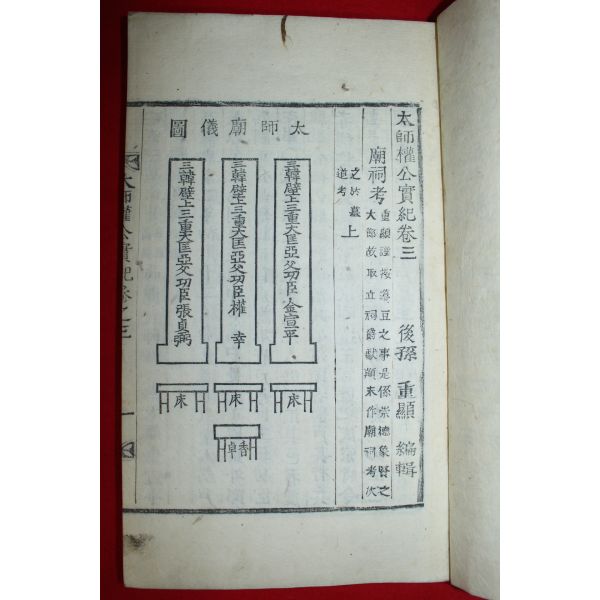 太師權公實紀卷三
後孫 重顯 編輯
廟祠考
重顯謹按籩豆之事是係崇德象賢之
大節故取立祠爲獻顚末作廟祠考次
之於墓
道考
上
太師廟儀圖
三韓壁上三重大匡亞父功臣金宣平
三韓壁上三重大匡亞父功臣權幸
三韓壁上三重大匡亞父功臣張貞弼
床
床
床
香卓
太師權公實紀卷之三
一